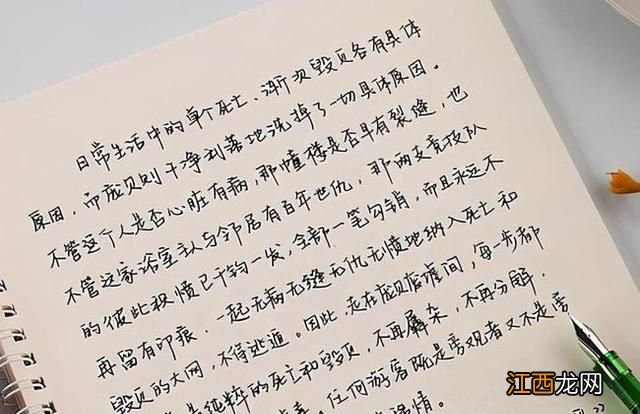 日常生活中的单个死亡、渐次毁灭各有具体
原因，而庞贝则干净利落地洗掉了一切具体原因。
不管这个人是否心脏有病，那幢楼是否早有裂缝，也
不管这家浴室主人与邻居有百年世仇，那两支竞技队
的彼此积愤已千钧一发，全部一笔勾销，而且永远不
再留有印痕，一起无病无缝无仇无愤地纳入死亡和
毁灭的大网，不得逃遁。因此，走在庞贝废墟间，每一步都
纯粹的死亡和毁灭，不再羼杂，不再分解，
任何游客既是旁观者又不是旁
江西龙网
WWW.JXCN.COM